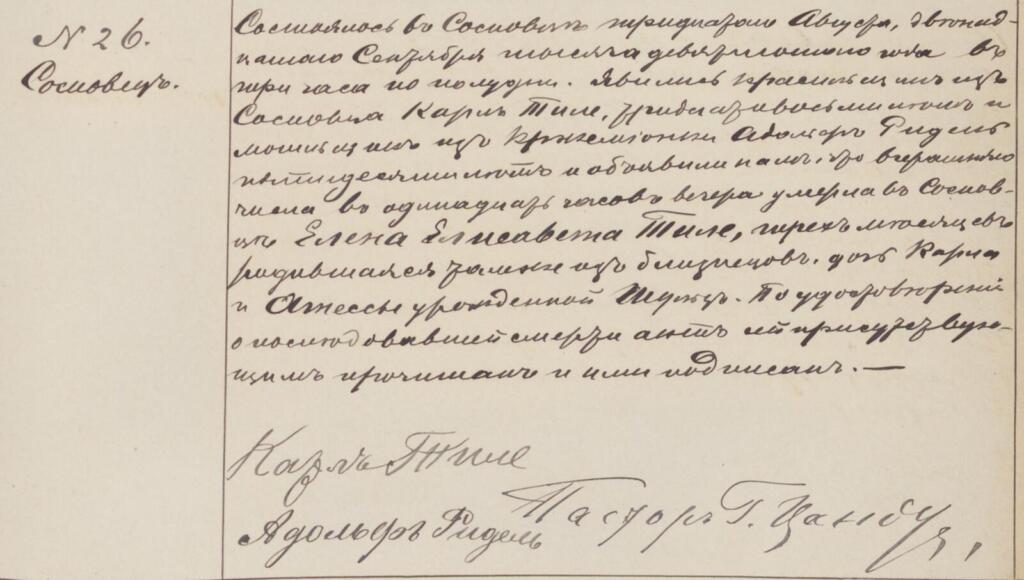 N 26.
Сосновецъ.
Состоялось въ Сосновицахъ тридцатаго Августа, двѣнад-
цатаго Сентября тысяча девятисотаго года въ
три часа по полудни. Явились красильщикъ изъ
Сосновца Карлъ Тиле, тридцативосьмилѣтъ и
изъ Адольфъ Ридель
пятидесятилѣтъ и объявили намъ, что вчерашняго
числа въ одинадцать часовъ вечера умерла въ Соснов-
цѣ Елена Елисавета Тиле, трехъ мѣсяцевъ
родившаяся тамже изъ близнецовъ, дочь Карла
и Агнессы урожденной Шульцъ. По удостовѣреніи
о послѣдовавшей смерти актъ сей присутствую-
щимъ прочитанъ и ими подписанъ. —
Карлъ Тиле
Адольфъ Ридель
Пасторъ Г.